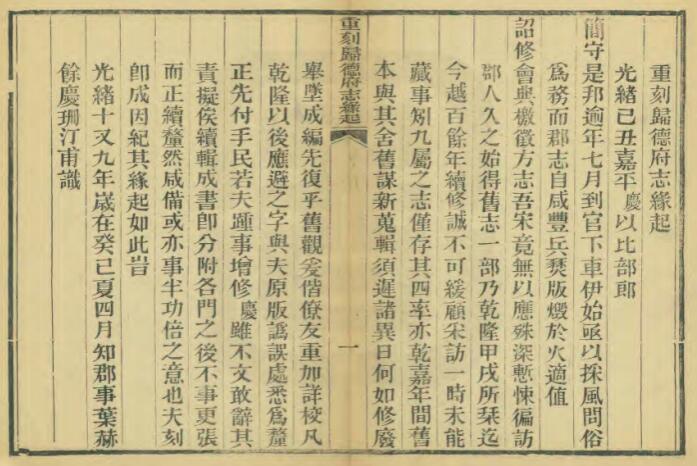 重刻歸德府志緣起
光緒己丑嘉平慶以比部郎
簡守是邦逾年七月到官下車伊始亟以採風問俗
爲務而郡志自咸豐兵燹版燬於火適值
詔修會典檄徵方志吾宋竟無以應殊深慙悚徧訪
郡人久之始得舊志一部乃乾隆甲戌所栞迄
今越百餘年續修誠不可緩顧采訪一時未能
蕆事矧九屬之志僅存其四率亦乾嘉年間舊
本與其舍舊謀新蒐輯須遲諸異日何如修廢
重刻歸德府志緣起
一
舉墜成編先復乎舊觀爰偕僚友重加詳校凡
乾隆以後應避之字與夫原版譌誤處悉爲釐
正先付手民若夫踵事增修慶雖不文敢辭其
責擬俟續輯成書卽分附各門之後不事更張
而正續釐然咸備或亦事半功倍之意也夫刻
卽成因紀其緣起如此旹
光緒十又九年歲在癸巳夏四月知郡事葉赫
餘慶珊汀甫識